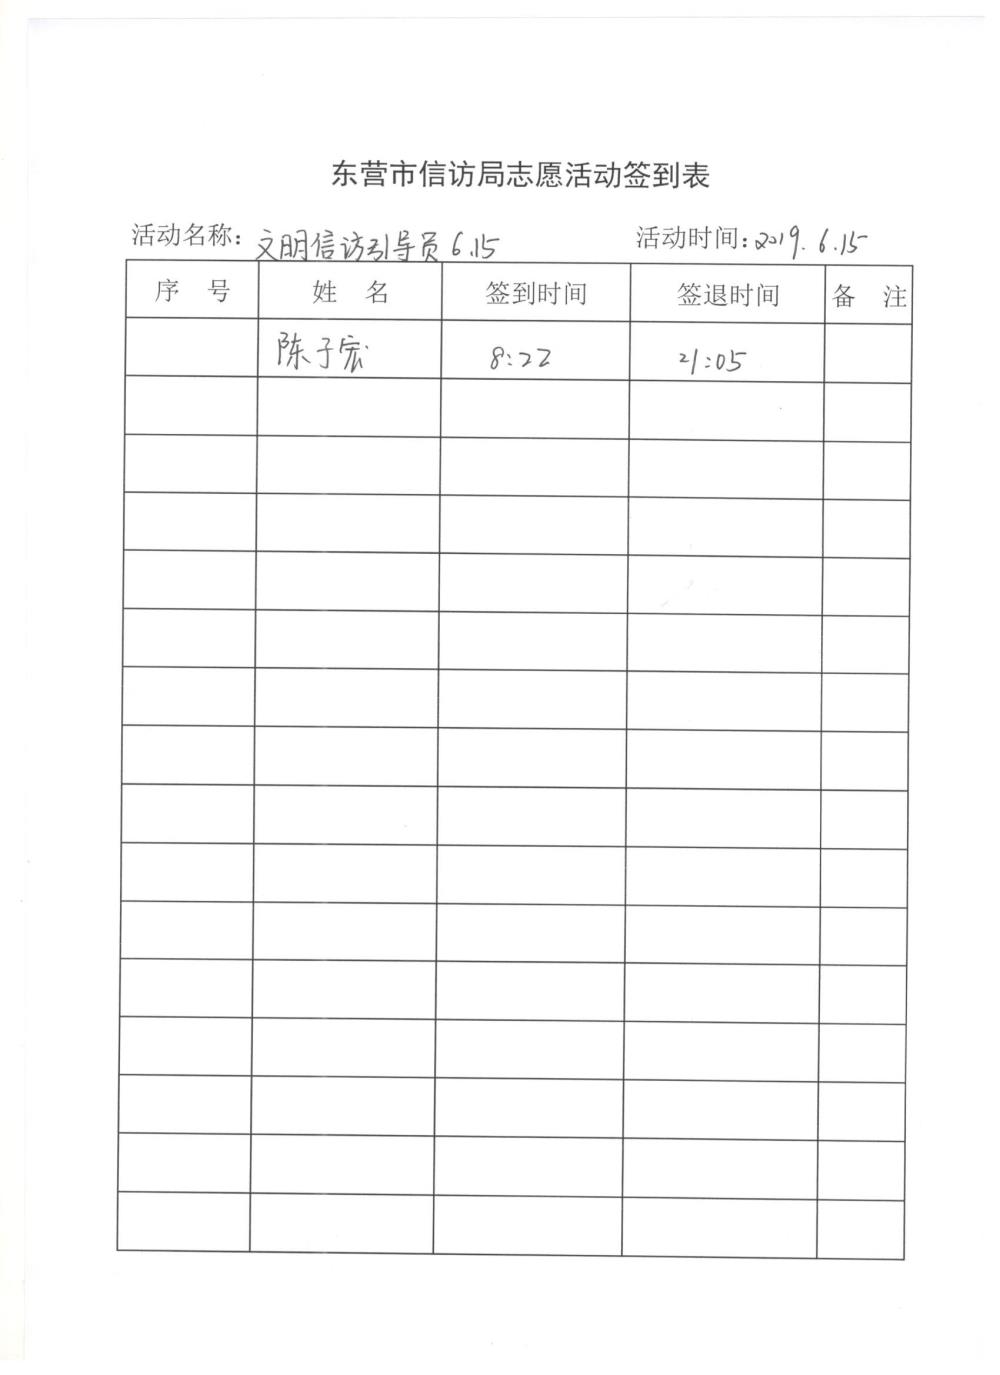 东营市信访局志愿活动签到表
活动名称：文明信访引导员6.15 活动时间：2019.6.15
序 号 姓 名 签到时间 签退时间 备 注
陈子宏 8:22 21:05